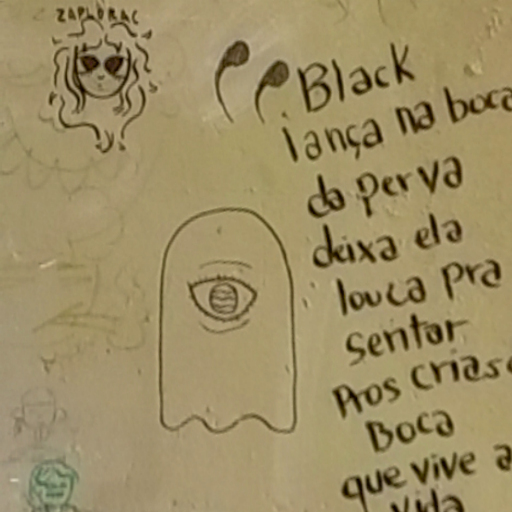 ZAPLORAC
“Black
lança na boca
da perva
deixa ela
louca pra
sentar
Pros crias
Boca
que vive a
vida